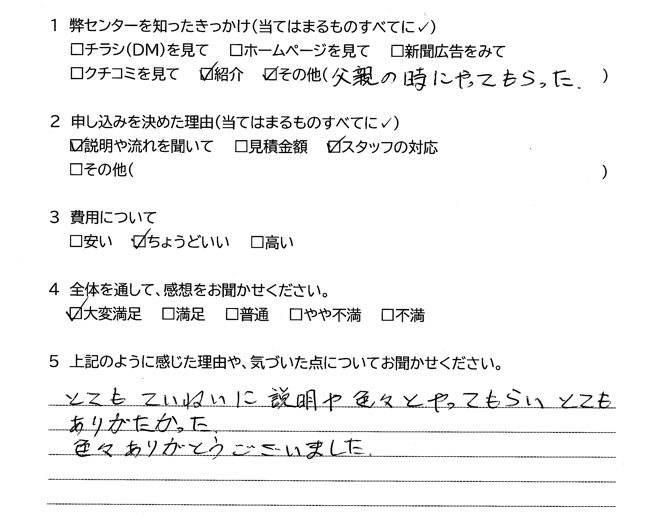 1 弊センターを知ったきっかけ(当てはまるものすべてに✓)
□チラシ(DM)を見て □ホームページを見て □新聞広告をみて
□クチコミを見て ☑紹介 ☑その他(父親の時にやってもらった. )
2 申し込みを決めた理由(当てはまるものすべてに✓)
☑説明や流れを聞いて □見積金額 ☑スタッフの対応
□その他( )
3 費用について
□安い ☑ちょうどいい □高い
4 全体を通して、感想をお聞かせください。
☑大変満足 □満足 □普通 □やや不満 □不満
5 上記のように感じた理由や、気づいた点についてお聞かせください。
とても ていねいに 説明や 色々と やってもらい とても
ありがたかった.
色々 ありがとうございました.